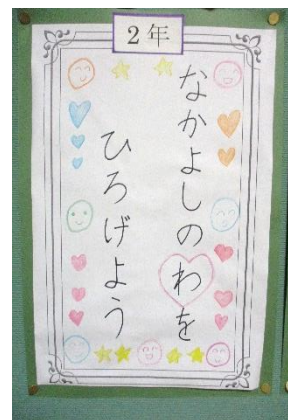 2年
なかよしのわを
ひろげよう